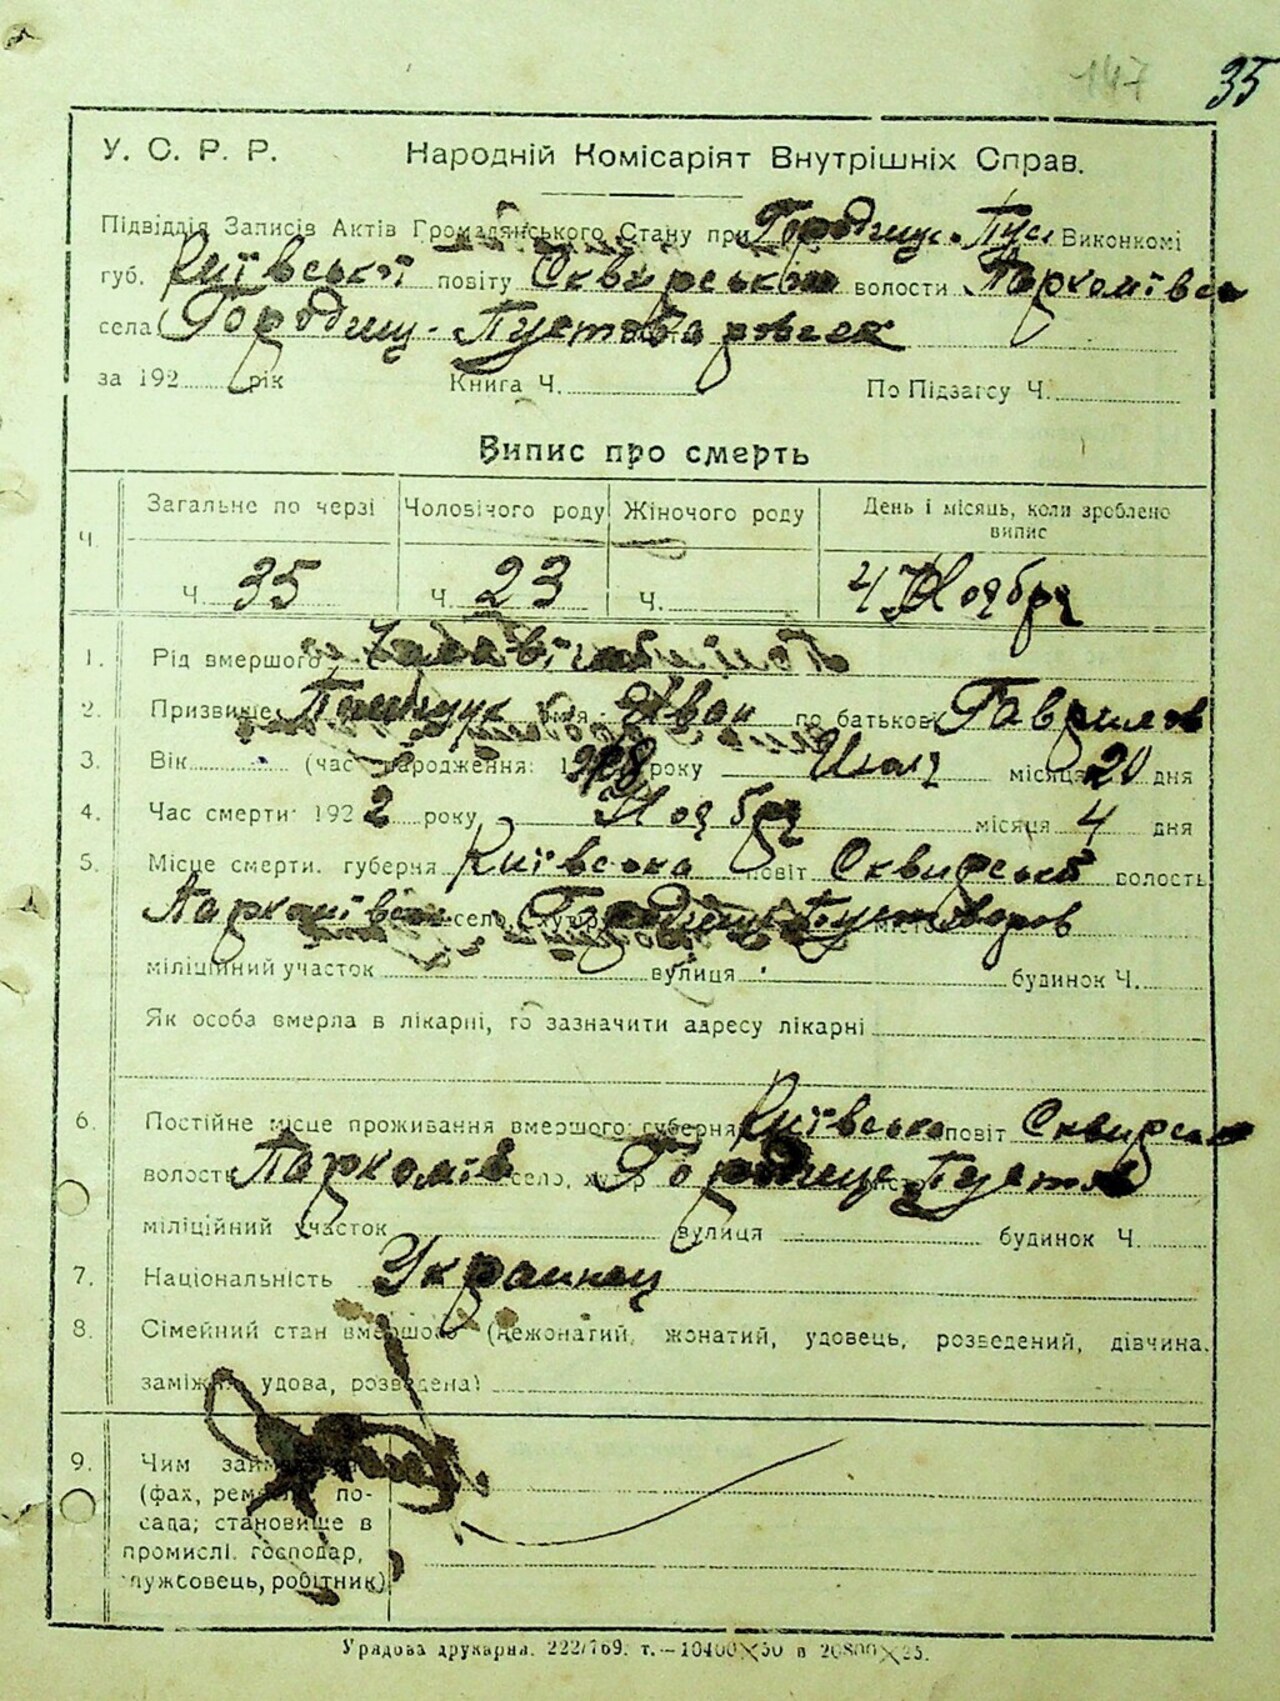 147 35
У. С. Р. Р. Народній Комісаріят Внутрішніх Справ.
Підвідділ Записів Актів Громадянського Стану при Городищ. Пус Виконкомі
губ. Київської повіту Сквирський волости Паркомівсь
села Городищ-Пустоваровськ
за 192 рік Книга Ч. По Підзагсу Ч.
Випис про смерть
Загальне по черзі Чоловічого роду Жіночого роду День і місяць, коли зроблено
випис
ч.
Ч. 35 ч. 23 ч. 4 Ноября
1. Рід вмершого
2. Призвище імя Иван по батькові Гаврилов
3. Вік (час народження: року Июля місяця 20 дня
4. Час смерти: 1922 року Ноября місяця 4 дня
5. Місце смерти. губерня Київська повіт Сквирськ волость
Паркомівськ село, хутір Городищ Пустоваров
міліційний участок вулиця будинок Ч.
Як особа вмерла в лікарні, то зазначити адресу лікарні
6. Постійне місце проживання вмершого: губерня Київська повіт Сквирськ
волость Паркомів село, хутір Городище Пустов
міліційний участок вулиця будинок Ч.
7. Національність Украинец
8. Сімейний стан вмершого (нежонатий, жонатий, удовець, розведений, дівчина.
заміжня, удова, розведена)
9. Чим займався
(фах, ремесло, по-
сада; становище в
промислі. господар,
службовець, робітник)
Урядова друкарня. 222/769. т.—10400×50 в 20800×25.